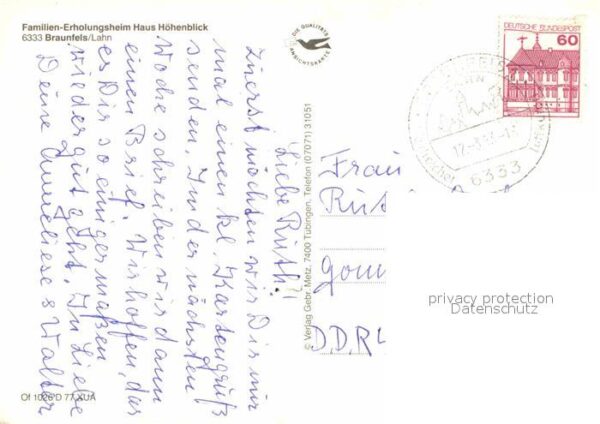 Familien-Erholungsheim Haus Höhenblick
6333 Braunfels/Lahn
DIE QUALITÄTS
ANSICHTSKARTE
DEUTSCHE BUNDESPOST
60
6333
Liebe Ruth!
Zuerst möchten wir Dir nur
mal einen kl. Kartengruß
senden. In der nächsten
Woche schreiben wir dann
einen Brief. Wir hoffen, das
es Dir so einigermaßen
wieder gut geht. In Liebe
Deine Anneliese & Walter
© Verlag Gebr. Metz, 7400 Tübingen, Telefon (07071) 31051
Frau
Rut
Gom
DDR
privacy protection
Datenschutz
Of 1026 D 77 XUA